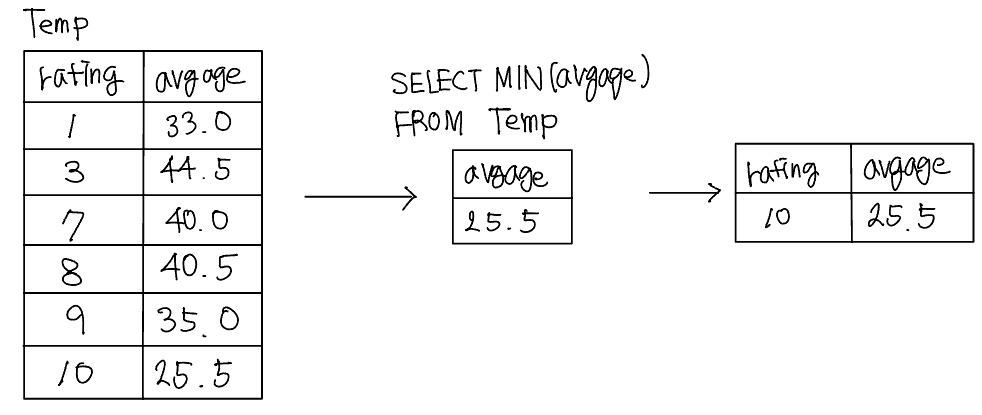 Temp
rating avgage
1 33.0
3 44.5
7 40.0
8 40.5
9 35.0
10 25.5
SELECT MIN(avgage)
FROM Temp
avgage
25.5
rating avgage
10 25.5